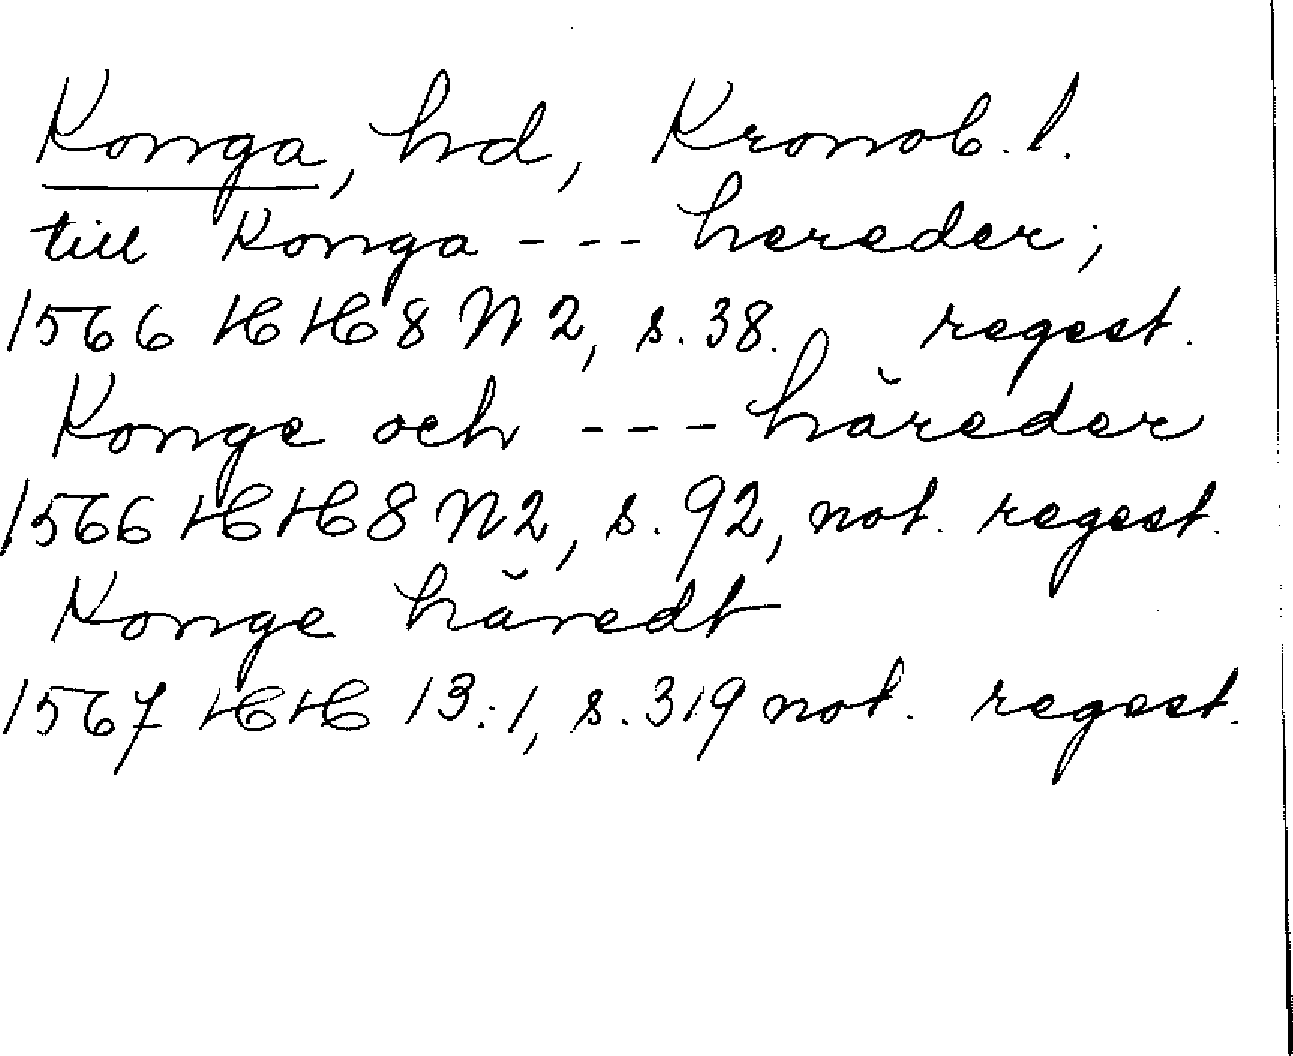 Konga, hd, Kronob. l.
till Konga - - - hereder;
1566 HH 8 N 2, s. 38. regest.
Konge och - - - häreder
1566 HH 8 N 2, s. 92, not. regest.
Konge häredt
1567 HH 13:1, s. 319 not. regest.